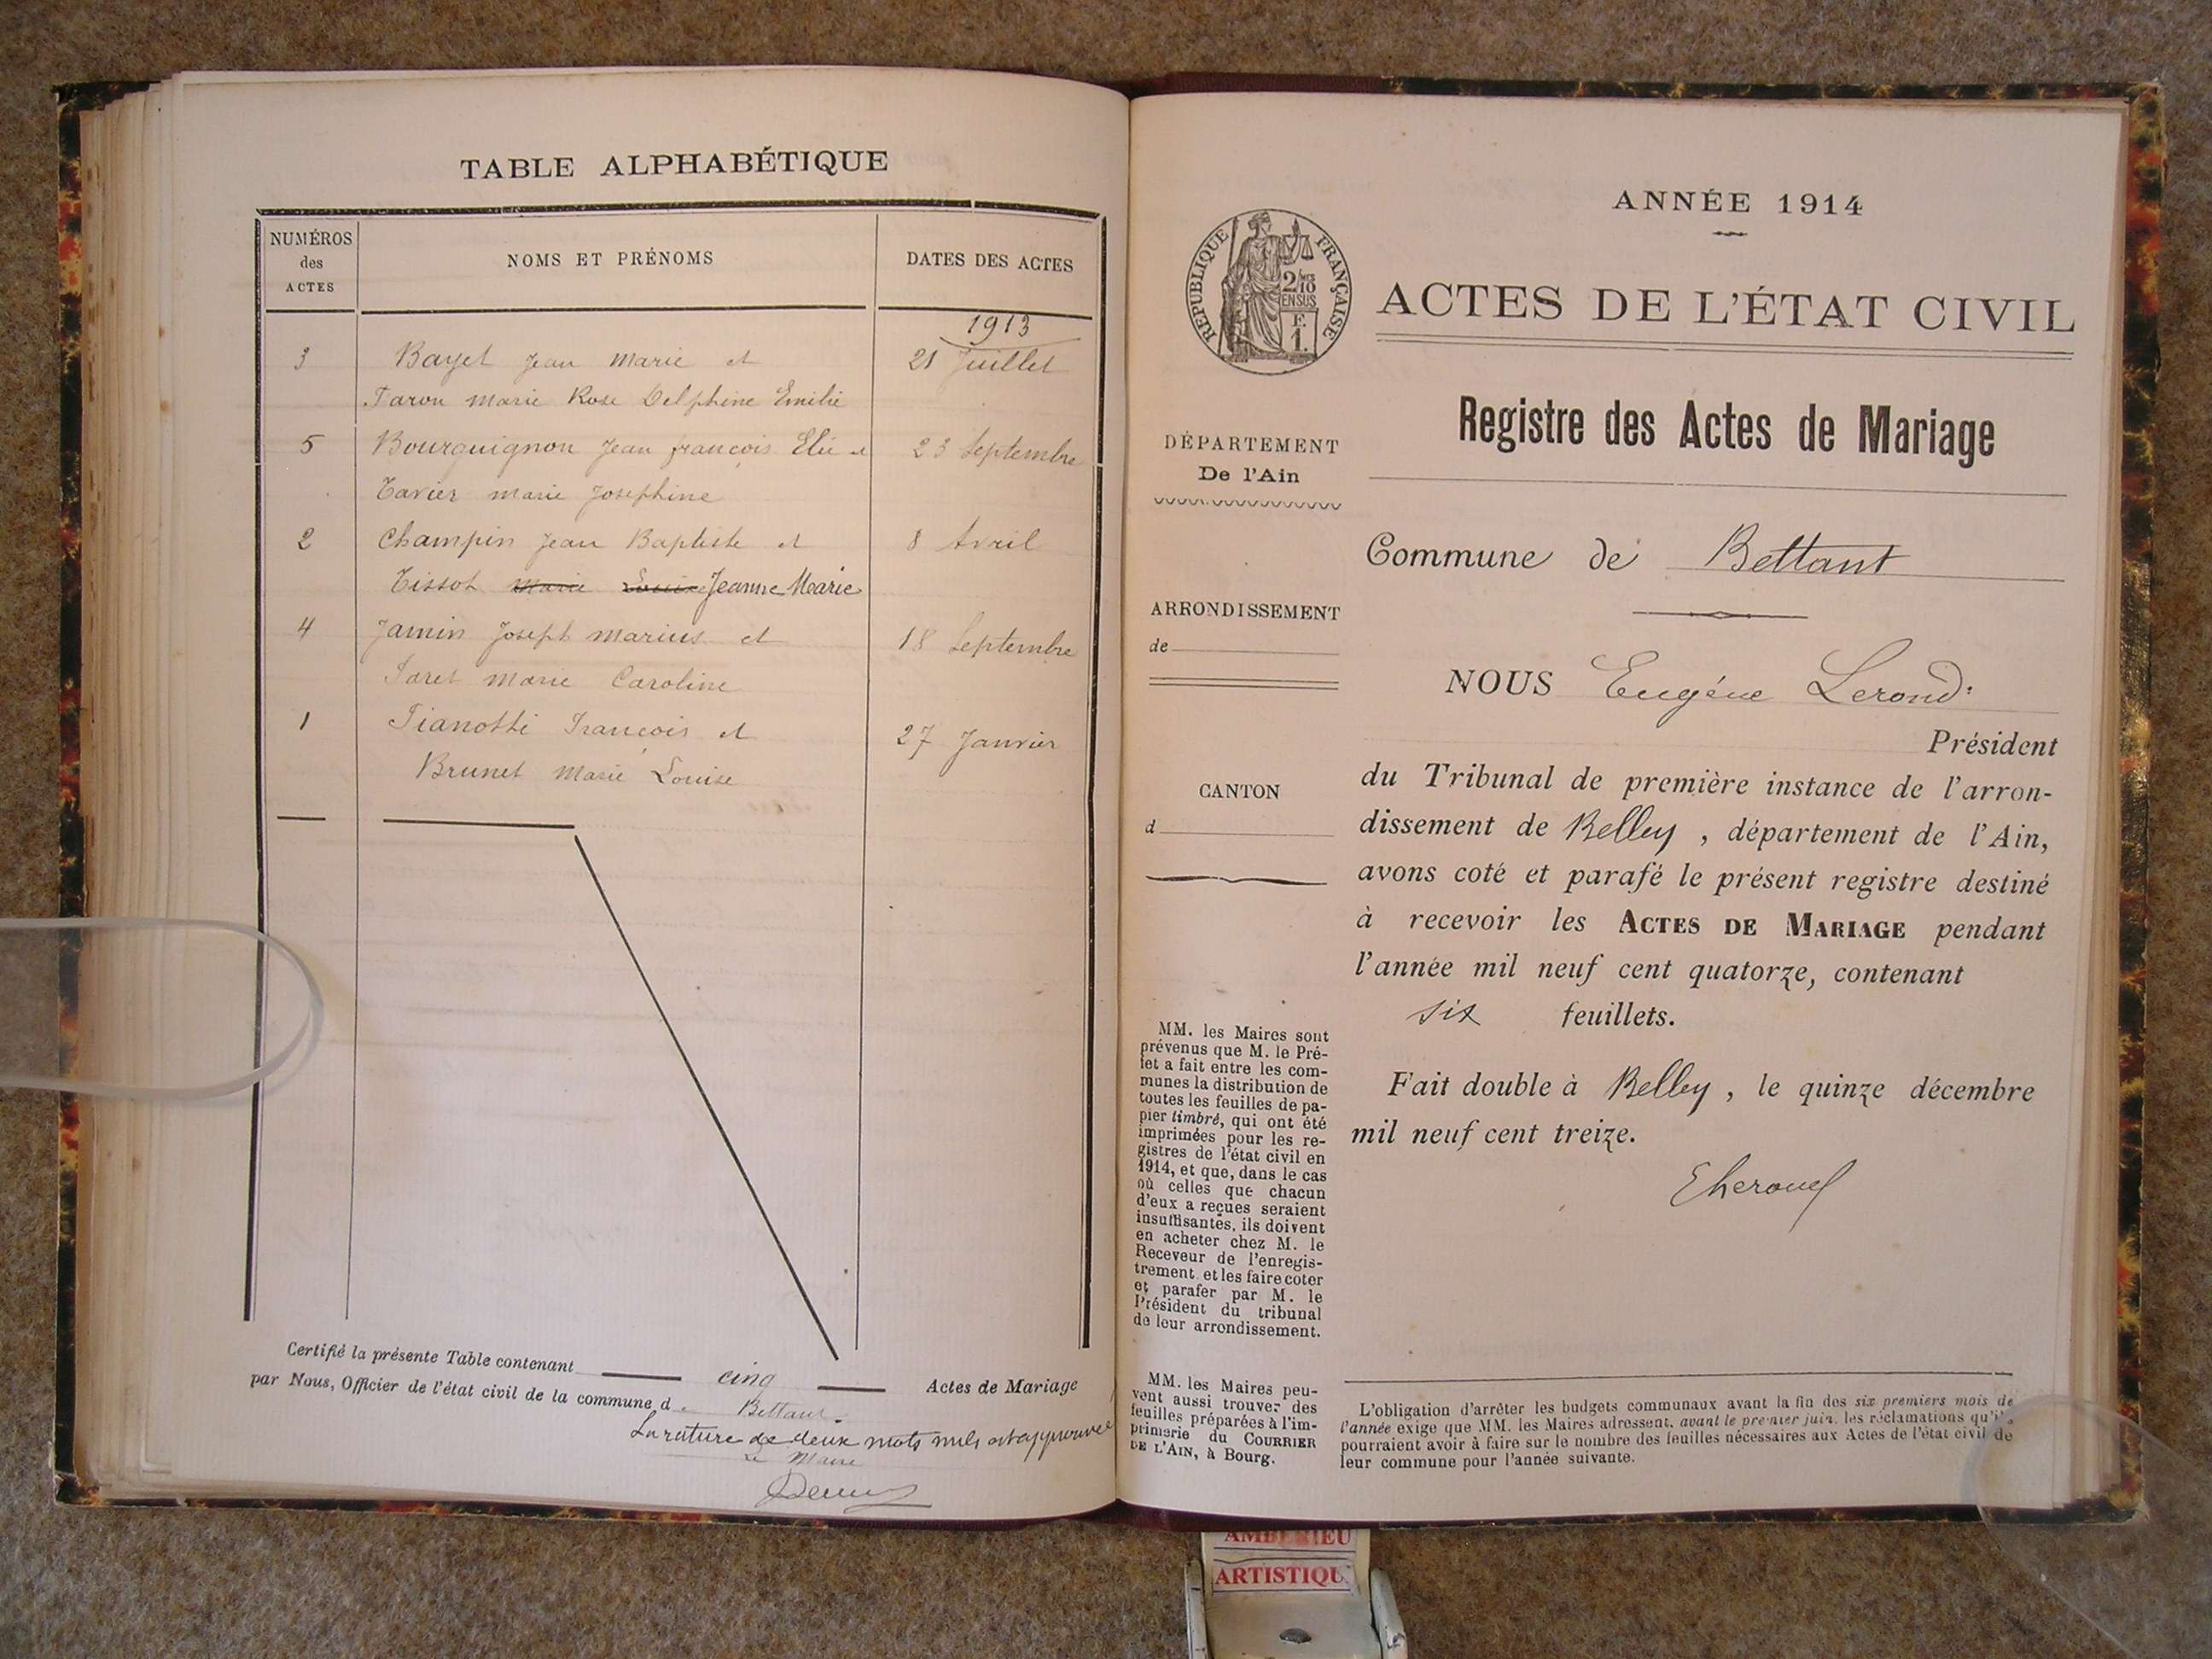 TABLE ALPHABÉTIQUE
NUMÉROS
des
ACTES
NOMS ET PRÉNOMS
DATES DES ACTES
1913
3 Bayet Jean Marie et 21 Juillet
Marie Rose Delphine Emilie
5 Bourguignon Jean françois Elie et 23 Septembre
Tavier marie Josephine
2 Champin Jean Baptiste et 8 Avril
Tissot Marie Louise Jeanne Marie
4 Jamin Joseph marius et 18 Septembre
marie Caroline
1 Tianotti François et 27 Janvier
Brunet Marie Louise
Certifié la présente Table contenant cinq Actes de Mariage
par Nous, Officier de l'état civil de la commune d e Bettant.
La rature de deux mots nuls est approuvée
Le Maire
ANNÉE 1914
RÉPUBLIQUE FRANÇAISE
2/10
EN SUS
F.
1.
ACTES DE L'ÉTAT CIVIL
Registre des Actes de Mariage
DÉPARTEMENT
De l'Ain
Commune de Bettant
ARRONDISSEMENT
de
NOUS Eugéne Lerond
Président
du Tribunal de première instance de l'arron-
dissement de Belley, département de l'Ain,
avons coté et parafé le présent registre destiné
à recevoir les ACTES DE MARIAGE pendant
l'année mil neuf cent quatorze, contenant
six feuillets.
Fait double à Belley, le quinze décembre
mil neuf cent treize.
CANTON
d
MM. les Maires sont
prévenus que M. le Pré-
fet a fait entre les com-
munes la distribution de
toutes les feuilles de pa-
pier timbré, qui ont été
imprimées pour les re-
gistres de l'état civil en
1914, et que, dans le cas
où celles que chacun
d'eux a reçues seraient
insuffisantes, ils doivent
en acheter chez M. le
Receveur de l'enregis-
trement et les faire coter
et parafer par M. le
Président du tribunal
de leur arrondissement.
MM. les Maires peu-
vent aussi trouver des
feuilles préparées à l'im-
primerie du COURRIER
DE L'AIN, à Bourg.
L'obligation d'arrêter les budgets communaux avant la fin des six premiers mois de
l'année exige que MM. les Maires adressent, avant le premier juin, les réclamations qu'ils
pourraient avoir à faire sur le nombre des feuilles nécessaires aux Actes de l'état civil de
leur commune pour l'année suivante.
AMBERIEU
ARTISTIQU